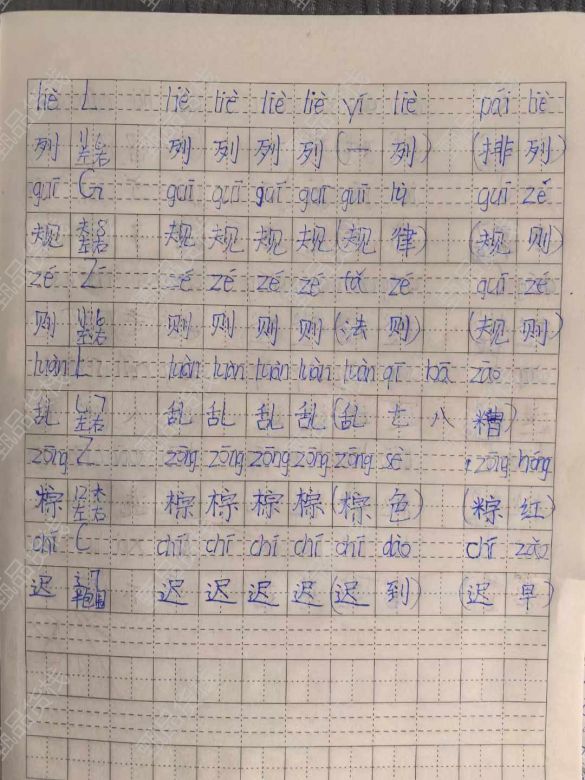 liè L liè liè liè liè yī liè pái liè
列 左右 列 列 列 列 (一 列) (排 列)
guī G guī guī guī guī guī lǜ guī zé
规 左右 规 规 规 规 (规 律) (规 则)
zé Z zé zé zé zé fǎ zé guī zé
则 左右 则 则 则 则 (法 则) (规 则)
luàn L luàn luàn luàn luàn luàn qī bā zāo
乱 左右 乱 乱 乱 乱 (乱 七 八 糟)
zōng Z zōng zōng zōng zōng zōng sè zōng hóng
棕 左右 棕 棕 棕 棕 (棕 色) (粽 红)
chí C chí chí chí chí chí dào chí zǎo
迟 半包围 迟 迟 迟 迟 (迟 到) (迟 早)